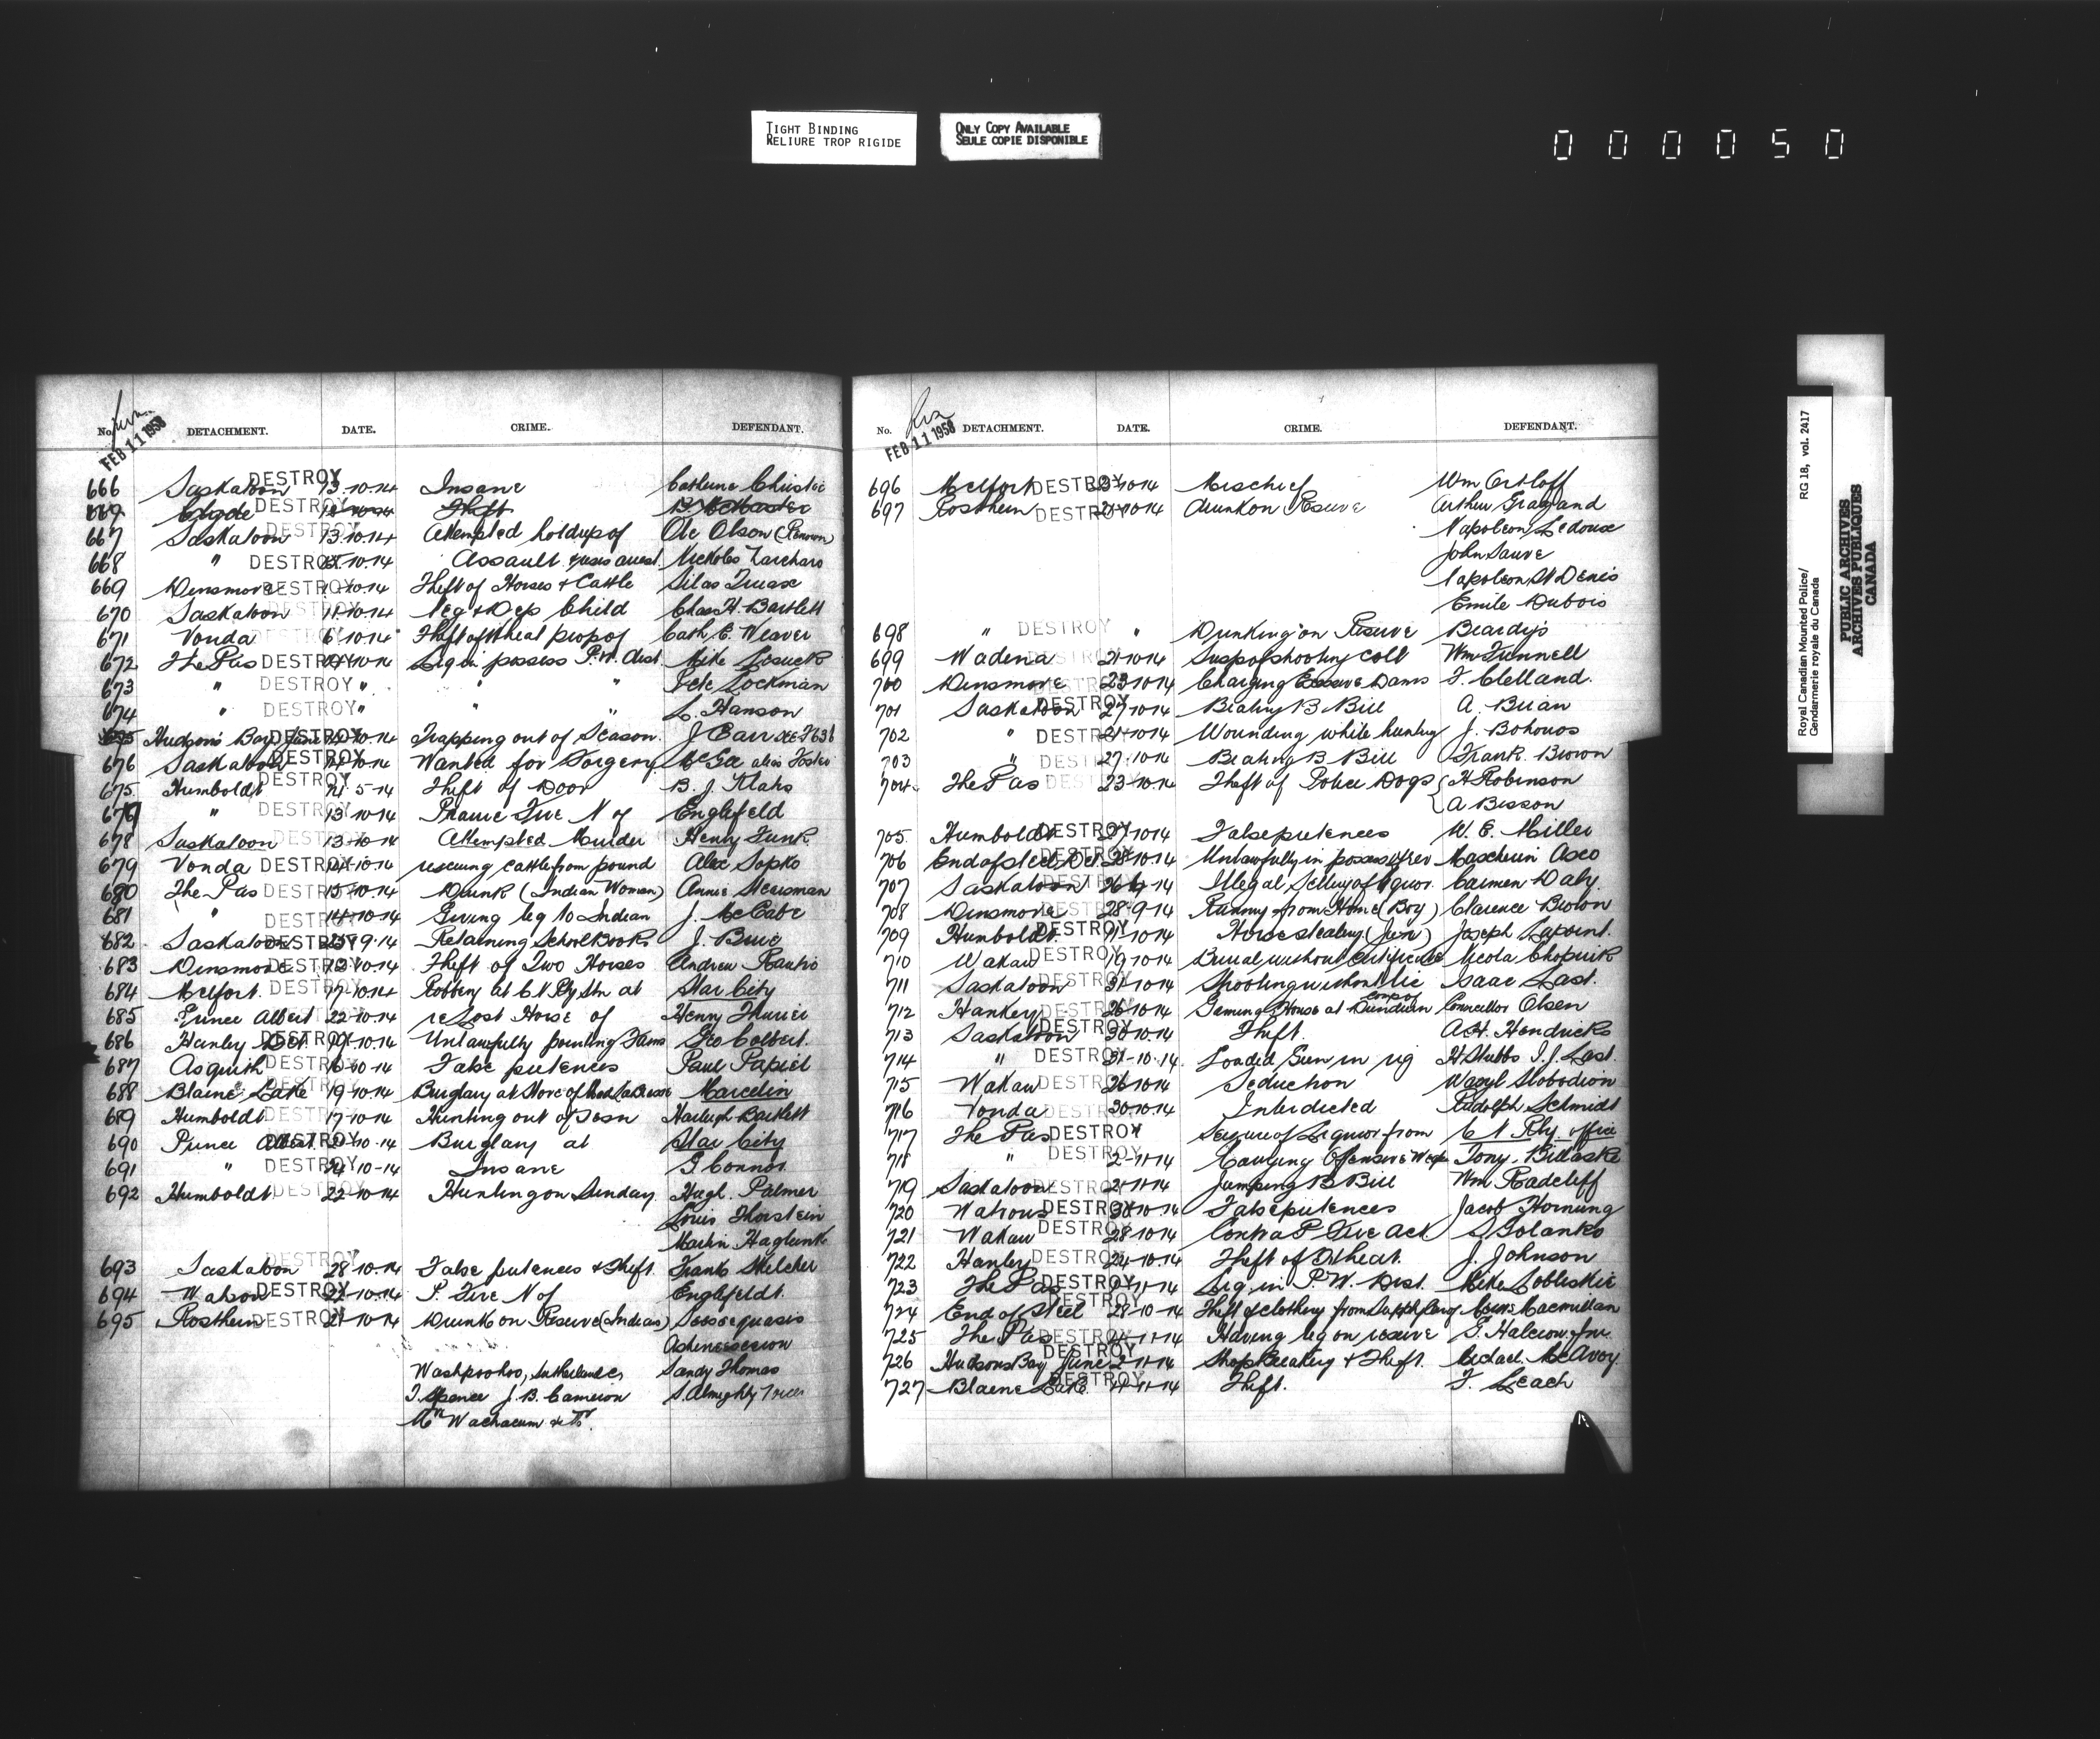 TIGHT BINDING
RELIURE TROP RIGIDE
ONLY COPY AVAILABLE
SEULE COPIE DISPONIBLE
000050
Royal Canadian Mounted Police/ RG 18, vol. 2417
Gendarmerie royale du Canada
PUBLIC ARCHIVES
ARCHIVES PUBLIQUES
CANADA
FEB 11 1958
No. DETACHMENT. DATE. CRIME. DEFENDANT.
666 Saskatoon DESTROY 13-10-14 Insane Catherine Christie
669 DESTROY Theft B. McMaster
667 Saskatoon DESTROY 13-10-14 Attempted holdup of Ole Olson (Renown)
668 " DESTROY 15-10-14 Assault & resis arrest. Nickolas Zarcharo
669 Dinsmore DESTROY 10-14 Theft of Horses & Cattle Silas Truax
670 Saskatoon DESTROY 11-10-14 Neg & Dep Child Chas H. Bartlett
671 Vonda DESTROY 6-10-14 Theft of Wheat prop of Cath. E. Weaver
672 The Pas DESTROY 10-14 Liq in possess P.W. Dist. Mike
673 " DESTROY " " " Pete Lockman
674 " DESTROY " " " L. Hanson
Hudson's Bay Junc DESTROY 10-14 Trapping out of Season. J Carr
676 Saskatoon DESTROY 10-14 Wanted for Forgery McGee alias Foster
675 Humboldt DESTROY 21-5-14 Theft of Door B. J. Klahs
676 " DESTROY 13-10-14 Prairie Fire N of Englefeld
678 Saskatoon DESTROY 13-10-14 Attempted Murder Henry Funk
679 Vonda DESTROY 10-14 rescuing cattle from pound Alex Sopko
680 The Pas DESTROY 13-10-14 Drunk (Indian Woman) Annie Steersman
681 " DESTROY 14-10-14 Giving liq to Indian J. McCabe
682 Saskatoon DESTROY 25-9-14 Retaining School Books J.
683 Dinsmore DESTROY 12-10-14 Theft of Two Horses Andrew Rautio
684 Melfort. DESTROY 17-10-14 Robbery at C N Rly Stn at Star City
685 Prince Albert DESTROY 22-10-14 re Lost Horse of Henry
686 Hanley Det. DESTROY 19-10-14 Unlawfully Geo Colbert.
687 Asquith DESTROY 16-10-14 False pretences Paul Papiel
688 Blaine Lake DESTROY 19-10-14 Burglary at Store of Marcelin
689 Humboldt DESTROY 17-10-14 Hunting out of Sesn Harleigh Bartlett
690 Prince Albert DESTROY 10-14 Burglary at Star City
691 " DESTROY 24-10-14 Insane G. Connor
692 Humboldt. DESTROY 22-10-14 Hunting on Sunday. Hugh. Palmer
Louis Thorstein
Martin Haglunk
693 Saskatoon DESTROY 28-10-14 False pretences & Theft. Frank Skelcher
694 Watson DESTROY 22-10-14 P. Fire N of Englefeldt.
695 Rosthern DESTROY 21-10-14 Drunk on Reserve (Indians) Seeseequasis
Sandy Thomas
Washpoohoo, Sutherlands, S. Almighty Voice
T. Spence J. B. Cameron
FEB 11 1958
No. DETACHMENT. DATE. CRIME. DEFENDANT.
696 Melfort DESTROY 23-10-14 Mischief Wm Ortloff
697 Rosthern DESTROY 21-10-14 Drunk on Reserve Arthur
Napoleon Ledoux
John Sauve
Napoleon St Denis
Emile Dubois
698 " DESTROY " Drunking on Reserve Beardys
699 Wadena DESTROY 21-10-14 Susp of shooting colt Wm Funnell
700 Dinsmore DESTROY 23-10-14 Charging Excessive Dams F. Clelland.
701 Saskatoon DESTROY 27-10-14 Beating B Bill A. Brian
702 " DESTROY 21-10-14 Wounding while hunting J. Bohonos
703 " DESTROY 27-10-14 Beating B Bill Frank. Brown
704 The Pas DESTROY 23-10-14 Theft of Police Dogs { H Robinson
A Bisson
705 Humboldt DESTROY 27-10-14 False pretences W. E. Miller
706 End of Steel Det. DESTROY 28-10-14 Unlawfully in possess of rev Mascherin Asco
707 Saskatoon DESTROY 14 Illegal Selling of liquor. Carmen Daly
708 Dinsmore DESTROY 28-9-14 Running from Home (Boy) Clarence Brown
709 Humboldt. DESTROY 11-10-14 Horse stealing (Juv) Joseph Lapoint.
710 Wakaw DESTROY 19-10-14 Burial without Certificate Nicola Chopuik
711 Saskatoon DESTROY 31-10-14 Shooting without lic Isaac Last.
712 Hanley DESTROY 26-10-14 Gaming House at Dundurn comp of Councellor Olsen
713 Saskatoon DESTROY 30-10-14 Theft. A.H. Hendricks
714 " DESTROY 31-10-14. Loaded Gun in rig H Stubbs I. J. Last.
715 Wakaw DESTROY 26-10-14 Seduction Wasyl Slobodian
716 Vonda DESTROY 30-10-14 Interdicted Rudolph Schmidt
717 The Pas DESTROY Seizure of Liquor from C N Rly. office
718 " DESTROY 2-11-14 Carrying Offensive Weap Tony. Bilaske
719 Saskatoon DESTROY 2-11-14 Jumping B Bill Wm Radcliff
720 Watrous DESTROY 30-10-14 False pretences Jacob Hornung
721 Wakaw DESTROY 28-10-14 Contra P Fire Act. S Golanko
722 Hanley DESTROY 24-10-14. Theft of Wheat. J. Johnson
723 The Pas DESTROY 11-14 Liq in P. W. Dist. Mike Sobleskie
724 End of Steel DESTROY 28-10-14 Theft of clothing from Macmillan
725 The Pas DESTROY 11-14 Having liq on reserve G. Halcrow. Jnr.
726 Hudsons Bay Junc DESTROY 2-11-14 Shop Breaking & Theft. Michael. McAvoy.
727 Blaine Lake DESTROY 4-11-14 Theft. F. Leach